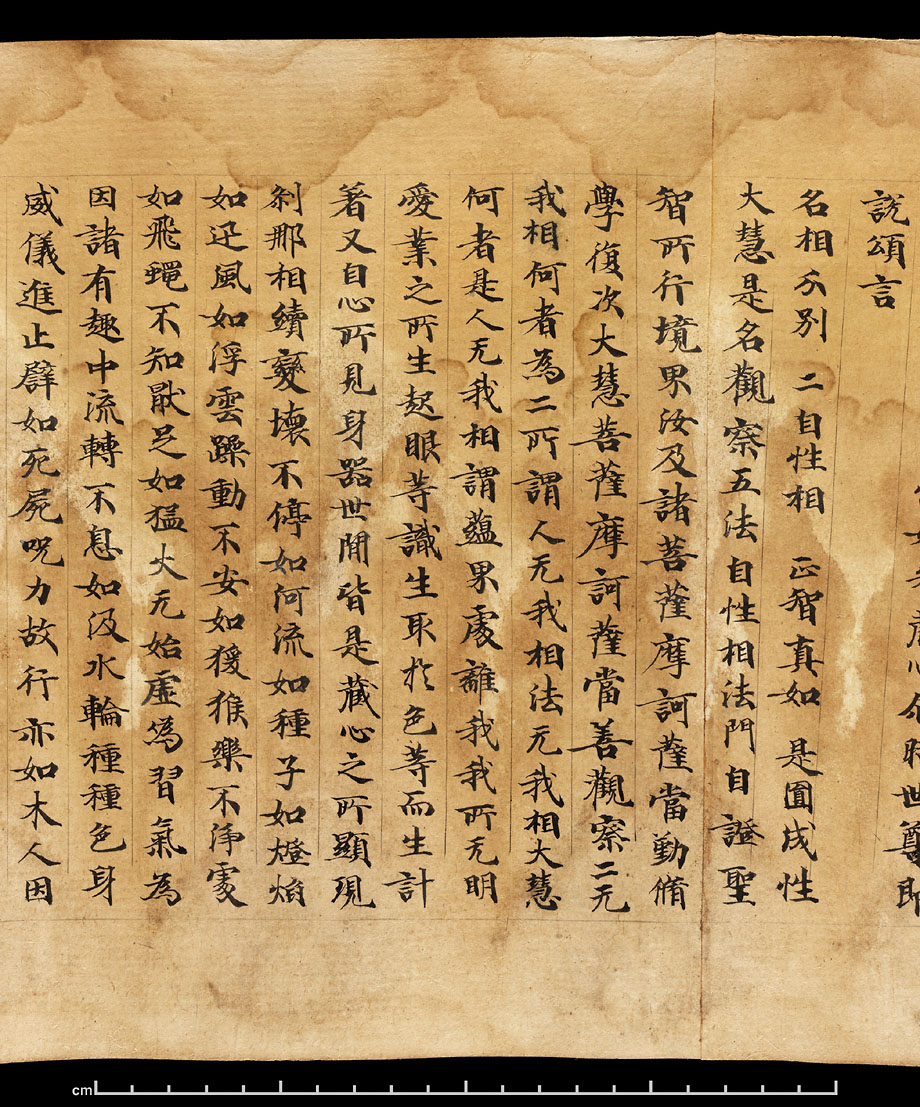 尒時世尊即
說頌言
名相分別 二自性相 正智真如 是圓成性
大慧是名觀察五法自性相法門自證聖
智所行境界汝及諸菩薩摩訶薩當勤脩
學復次大慧菩薩摩訶薩當善觀察二无
我相何者為二所謂人无我相法无我相大慧
何者是人无我相謂蘊界處離我我所无明
愛業之所生起眼等識生取於色等而生計
著又自心所見身器世間皆是藏心之所顯現
剎那相續變壞不停如河流如種子如燈焰
如迅風如浮雲躁動不安如猨猴樂不淨處
如飛蠅不知猒足如猛火无始虛偽習氣為
因諸有趣中流轉不息如汲水輪種種色身
威儀進止譬如死屍呪力故行亦如木人因
cm